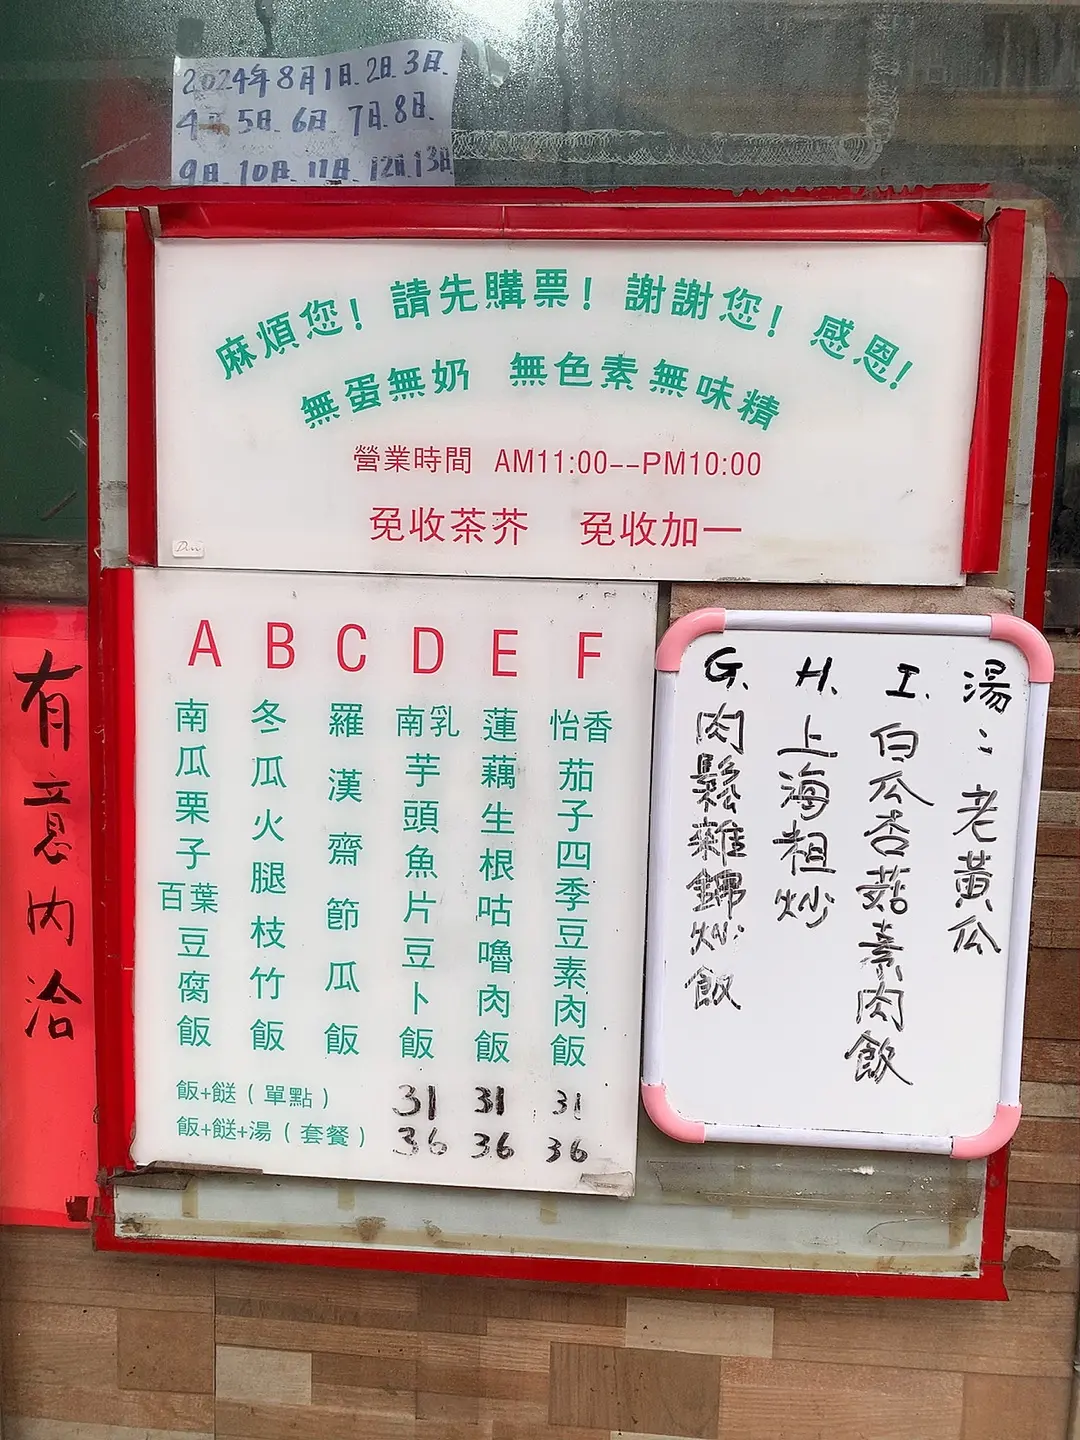 2024年8月1日、2日、3日、
4日、5日、6日、7日、8日、
9日、10日、11日、12日、13日
麻煩您！請先購票！謝謝您！感恩！
無蛋無奶 無色素無味精
營業時間 AM11:00--PM10:00
免收茶芥 免收加一
A
南瓜栗子百葉豆腐飯
B
冬瓜火腿枝竹飯
C
羅漢齋節瓜飯
D
南乳芋頭魚片豆卜飯
E
蓮藕生根咕嚕肉飯
F
怡香茄子四季豆素肉飯
飯+餸（單點） 31 31 31
飯+餸+湯（套餐） 36 36 36
G.
肉鬆雜錦炒飯
H.
上海粗炒
I.
白瓜杏菇素肉飯
湯：老黃瓜
有意內洽